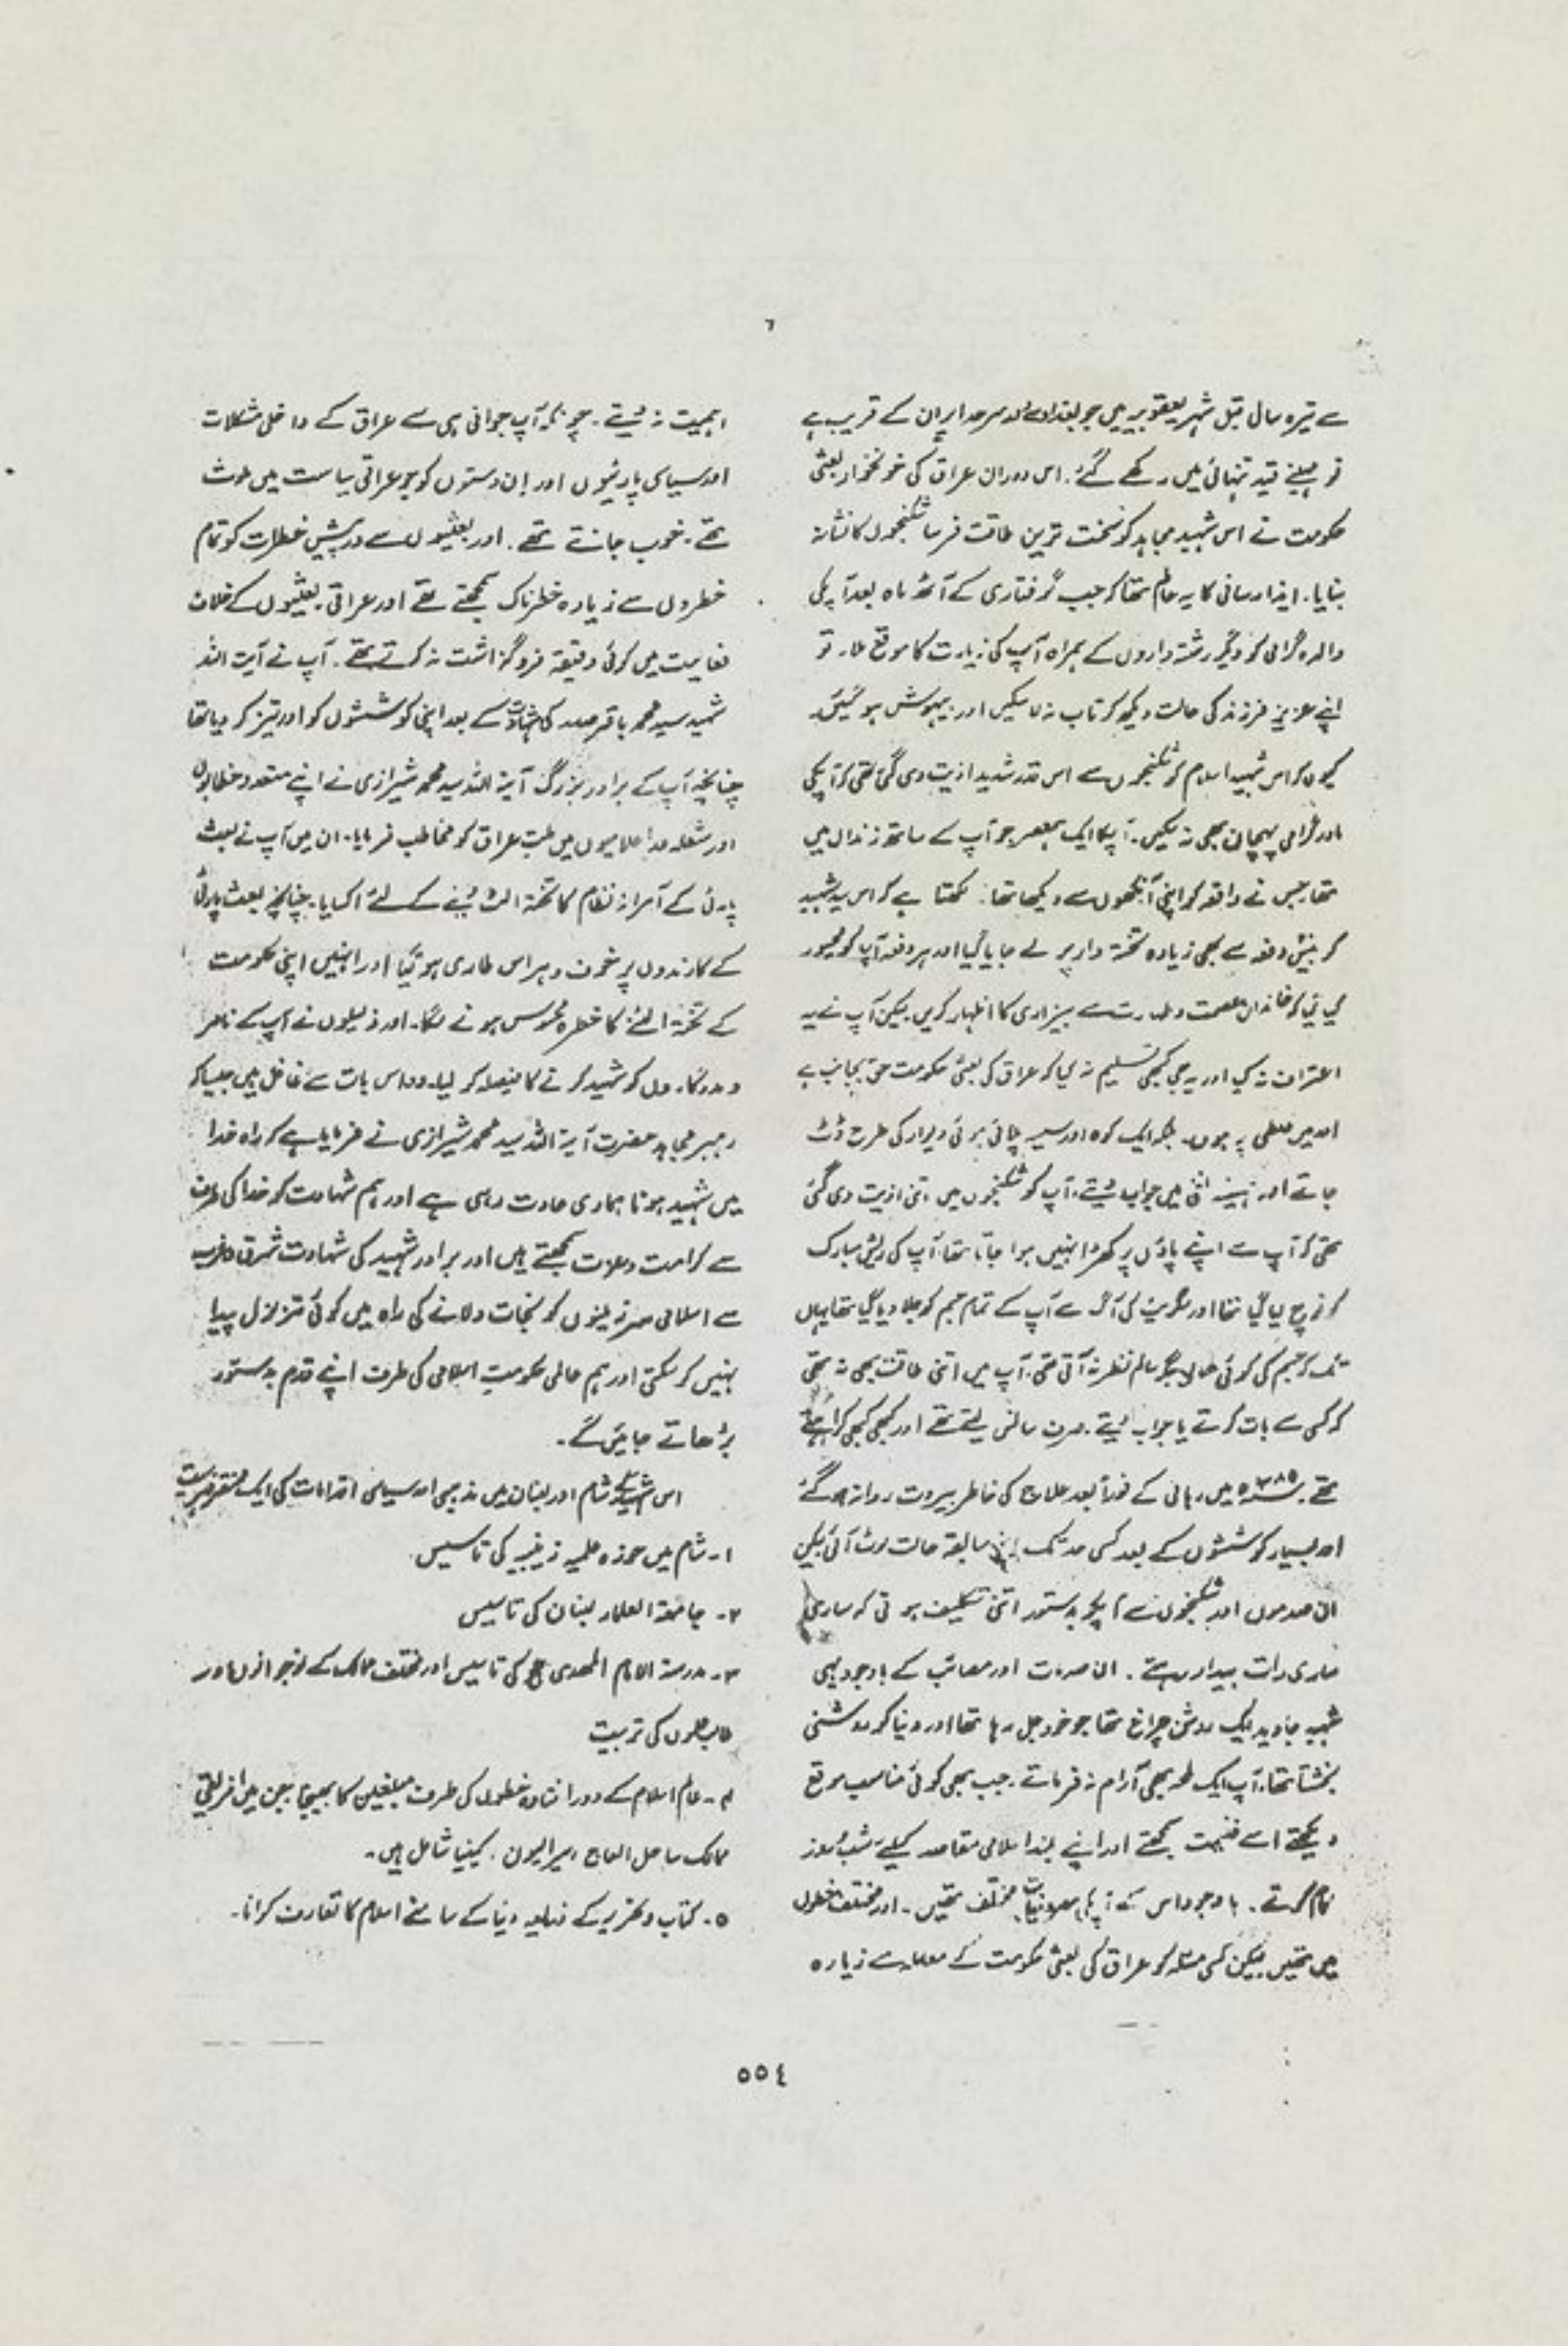 ٦
سے تیرہ سال قبل شہر یعقوبیہ میں جو بغداد اور سرحد ایران کے قریب ہے
نو مہینے قید تنہائی میں رکھے گئے. اس دوران عراق کی خونخوار بعثی
حکومت نے اس شہید مجاہد کو سخت ترین طاقت فرسا شکنجوں کا نشانہ
بنایا. ایذا رسانی کا یہ عالم تھا کہ جب گرفتاری کے آٹھ ماہ بعد آپ کی
والدہ گرامی کو دیگر رشتہ داروں کے ہمراہ آپ کی زیارت کا موقع ملا۔ تو
اپنے عزیز فرزند کی حالت دیکھ کر تاب نہ لا سکیں اور بیہوش ہو گئیں۔
کیوں کہ اس شہید اسلام کو شکنجوں سے اس قدر شدید اذیت دی گئی تھی کہ آپ کی
مادر گرامی پہچان بھی نہ سکیں. آپ کا ایک ہمعصر جو آپ کے ساتھ زندان میں
تھا جس نے واقعہ کو اپنی آنکھوں سے دیکھا تھا. لکھتا ہے کہ اس سید شہید
کو بیس دفعہ سے بھی زیادہ تختہ دار پر لے جایا گیا اور ہر دفعہ آپ کو مجبور
کی گئی کہ خاندان عصمت و طہارت سے بیزاری کا اظہار کریں لیکن آپ نے یہ
اعتراف نہ کیا اور یہ بھی کبھی تسلیم نہ کیا کہ عراق کی بعثی حکومت حق بجانب ہے
اور میں غلطی پہ ہوں۔ بلکہ ایک کوہ اور سیسہ پلائی ہوئی دیوار کی طرح ڈٹ
جاتے اور ہمیشہ نفی میں جواب دیتے. آپ کو شکنجوں میں اتنی اذیت دی گئی
تھی کہ آپ سے اپنے پاؤں پر کھڑا نہیں ہوا جاتا تھا. آپ کی ریش مبارک
کو نوچ لیا گیا تھا اور سگریٹ کی آگ سے آپ کے تمام جسم کو جلا دیا گیا تھا یہاں
تک کہ جسم کی کوئی خالی جگہ سالم نظر نہ آتی تھی. آپ میں اتنی طاقت بھی نہ تھی
کہ کسی سے بات کرتے یا جواب دیتے. صرف سانس لیتے تھے اور کبھی کبھی کراہتے
تھے. ۱۳۸۵ھ میں رہائی کے فوراً بعد علاج کی خاطر بیروت روانہ ہو گئے
اور بسیار کوششوں کے بعد کسی حد تک سابقہ حالت لوٹ آئی لیکن
ان صدموں اور شکنجوں سے آپکو بدستور اتنی تکلیف ہوتی کہ ساری
ساری رات بیدار رہتے. ان صدمات اور مصائب کے باوجود یہی
شہید جاوید ایک روشن چراغ تھا جو خود جل رہا تھا اور دنیا کو روشنی
بخشتا تھا. آپ ایک لمحہ بھی آرام نہ فرماتے. جب بھی کوئی مناسب موقع
دیکھتے اسے غنیمت سمجھتے اور اپنے بلند اسلامی مقاصد کیلئے شب و روز
کام کرتے. باوجود اس کے آپ کی مصروفیات مختلف تھیں. اور مختلف خطوں
میں تھیں لیکن کسی مسئلہ کو عراق کی بعثی حکومت کے معاملہ سے زیادہ
اہمیت نہ دیتے. چونکہ آپ جوانی ہی سے عراق کے داخلی مشکلات
اور سیاسی پارٹیوں اور ان دستوں کو جو عراقی سیاست میں ملوث
تھے. خوب جانتے تھے. اور بعثیوں سے درپیش خطرات کو تمام
خطروں سے زیادہ خطرناک سمجھتے تھے اور عراقی بعثیوں کے خلاف
فعالیت میں کوئی دقیقہ فروگزاشت نہ کرتے تھے. آپ نے آیت اللہ
شہید سید محمد باقر صدر کی شہادت کے بعد اپنی کوششوں کو اور تیز کر دیا تھا
چنانچہ آپ کے برادر بزرگ آیة اللہ سید محمد شیرازی نے اپنے متعدد خطابوں
اور شعلہ صدا اعلامیوں میں ملت عراق کو مخاطب فرمایا. ان میں آپ نے بعث
پارٹی کے آمرانہ نظام کا تختہ الٹ دینے کے لئے اکسایا. چنانچہ بعث پارٹی
کے کارندوں پر خوف و ہراس طاری ہو گیا اور انہیں اپنی حکومت
کے تختہ الٹنے کا خطرہ محسوس ہونے لگا. اور ذلیلوں نے آپ کے ناصر
و مددگار ول کو شہید کرنے کا فیصلہ کر لیا. وہ اس بات سے غافل ہیں جیسا کہ
رہبر مجاہد حضرت آیة اللہ سید محمد شیرازی نے فرمایا ہے کہ راہ خدا
میں شہید ہونا ہماری عادت رہی ہے اور ہم شہادت کو خدا کی طرف
سے کرامت و علامت سمجھتے ہیں اور برادر شہید کی شہادت شرق و غرب
سے اسلامی سرزمینوں کو نجات دلانے کی راہ میں کوئی تزلزل پیدا
نہیں کر سکتی اور ہم عالمی حکومت اسلامی کی طرف اپنے قدم بدستور
بڑھاتے جائیں گے۔
اس شہید کے شام اور لبنان میں مذہبی اور سیاسی اقدامات کی ایک مختصر فہرست
۱۔ شام میں حوزہ علمیہ زینبیہ کی تاسیس.
۲۔ جامعة العلماء لبنان کی تاسیس
۳۔ مدرسة الامام المہدی عج کی تاسیس اور مختلف ممالک کے نوجوانوں اور
طالب علموں کی تربیت
۴۔ عالم اسلام کے دور افتادہ خطوں کی طرف مبلغین کا بھیجنا جن میں افریقی
ممالک ساحل العاج، سیرالیون، کینیا شامل ہیں۔
۵۔ کتاب و تحریر کے ذریعہ دنیا کے سامنے اسلام کا تعارف کرانا۔
٥٥٤